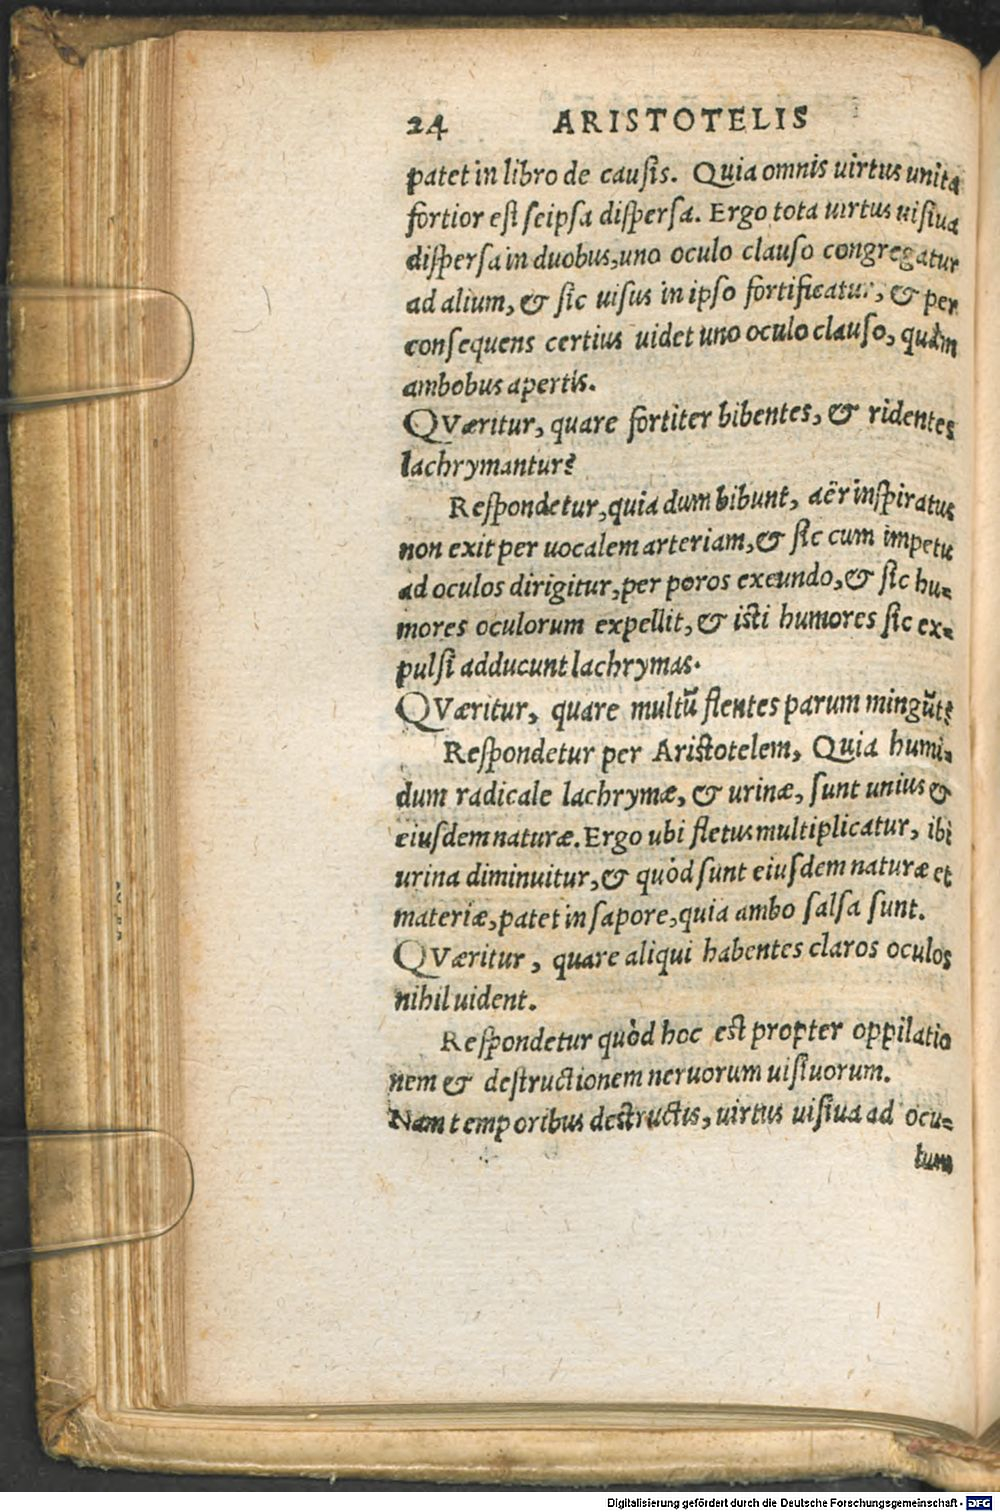 24 ARISTOTELIS
patet in libro de causis. Quia omnis uirtus unita
fortior est seipsa dispersa. Ergo tota uirtus uisiua
dispersa in duobus, uno oculo clauso congregatur
ad alium, & sic uisus in ipso fortificatur, & per
consequens certius uidet uno oculo clauso, quàm
ambobus apertis.
QVæritur, quare fortiter bibentes, & ridentes
lachrymantur?
Respondetur, quia dum bibunt, aër inspiratus
non exit per uocalem arteriam, & sic cum impetu
ad oculos dirigitur, per poros exeundo, & sic hu-
mores oculorum expellit, & isti humores sic ex-
pulsi adducunt lachrymas.
QVæritur, quare multũ flentes parum mingũt?
Respondetur per Aristotelem, Quia humi-
dum radicale lachrymæ, & urinæ, sunt unius &
eiusdem naturæ. Ergo ubi fletus multiplicatur, ibi
urina diminuitur, & quòd sunt eiusdem naturæ et
materiæ, patet in sapore, quia ambo salsa sunt.
QVæritur, quare aliqui habentes claros oculos
nihil uident.
Respondetur quòd hoc est propter oppilatio
nem & destructionem neruorum uisiuorum.
Nam temporibus destructis, uirtus uisiua ad ocu-
lum
Digitalisierung gefördert durch die Deutsche Forschungsgemeinschaft - DFG